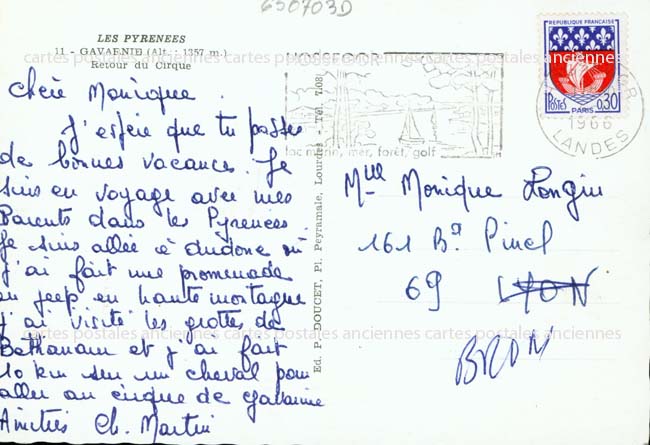 650703D
LES PYRENEES
11 - GAVARNIE (Alt. : 1357 m.)
Retour du Cirque
Chère Monique.
J'espère que tu passes
de bonnes vacances. Je
suis en voyage avec mes
Parents dans les Pyrénées.
Je suis allée à où
j'ai fait une promenade
en jeep en haute montagne
j'ai visité les grottes de
Betharam et j'ai fait
10 km sur un cheval pour
aller au cirque de Gavarnie
Amitiés Ch. Martin
Ed. P. DOUCET, Pl. Peyramale, Lourdes - Tél.
HOSSEGOR
lac marin, mer, forêt, golf
REPUBLIQUE FRANÇAISE
POSTES
PARIS
0,30
1966
LANDES
Mlle Monique Longin
161 Bd Pinel
69 LYON
BRON
cartes postales anciennes cartes postales anciennes cartes postales anciennes
cartes postales anciennes cartes postales anciennes cartes postales anciennes